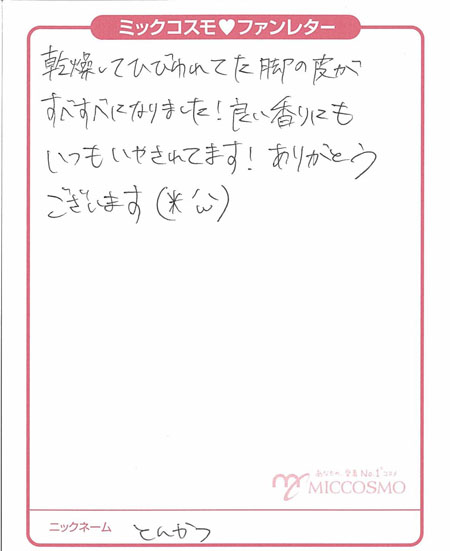 ミックコスモ♥ファンレター
乾燥してひびわれてた脚の皮が
すべすべになりました！良い香りにも
いつもいやされてます！ありがとう
ございます(*´ω`)
あなたの 発見 No.1コスメ
MICCOSMO
ニックネーム とんかつ